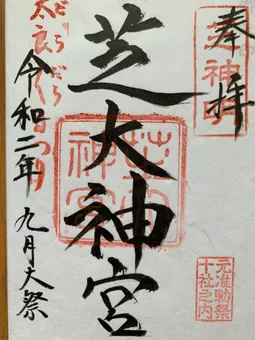 奉拝
芝神明
芝大神宮
芝大神宮
元准勅祭
十社之内
だらだら
太良
まつり
令和二年 九月大祭